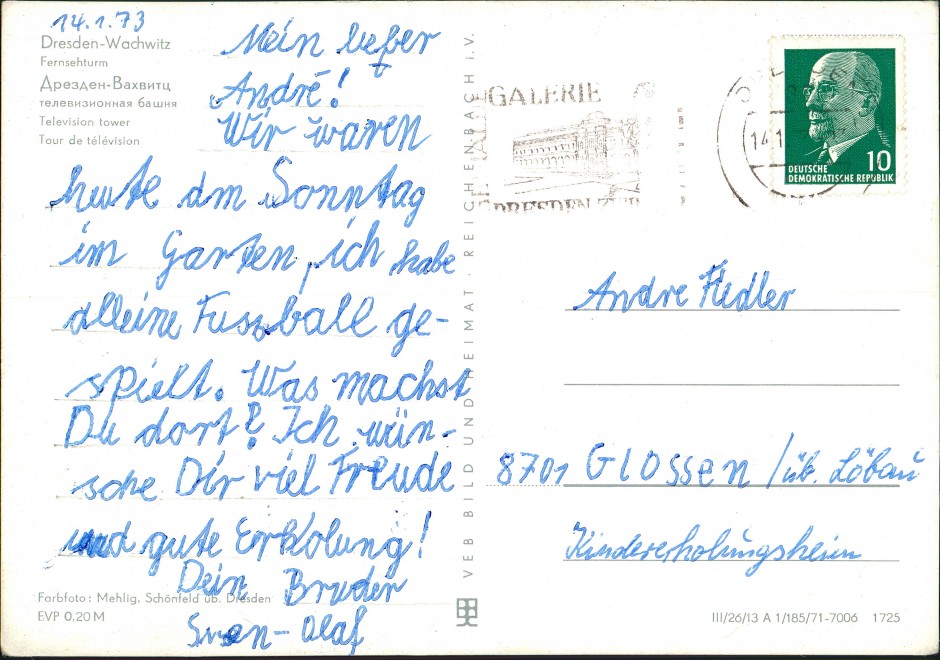 14.1.73
Dresden-Wachwitz
Fernsehturm
Дрезден-Вахвитц
телевизионная башня
Television tower
Tour de télévision
Mein lieber
André!
Wir waren
heute am Sonntag
im Garten, ich habe
alleine Fussball ge-
spielt. Was machst
Du dort? Ich wün-
sche Dir viel Freude
und gute Erholung!
Dein Bruder
Sven-Olaf
Farbfoto: Mehlig, Schönfeld üb. Dresden
EVP 0,20 M
VEB BILD UND HEIMAT REICHENBACH i.V.
GALERIE
DRESDEN
14.1
10
DEUTSCHE
DEMOKRATISCHE REPUBLIK
Andre Fiedler
8701 Glossen / üb. Löbau
Kindererholungsheim
III/26/13 A 1/185/71-7006 1725